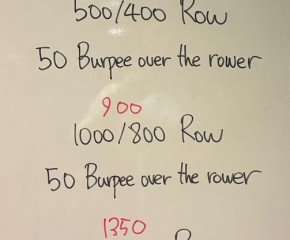 500/400 Row
50 Burpee over the rower
900
1000/800 Row
50 Burpee over the rower
1350